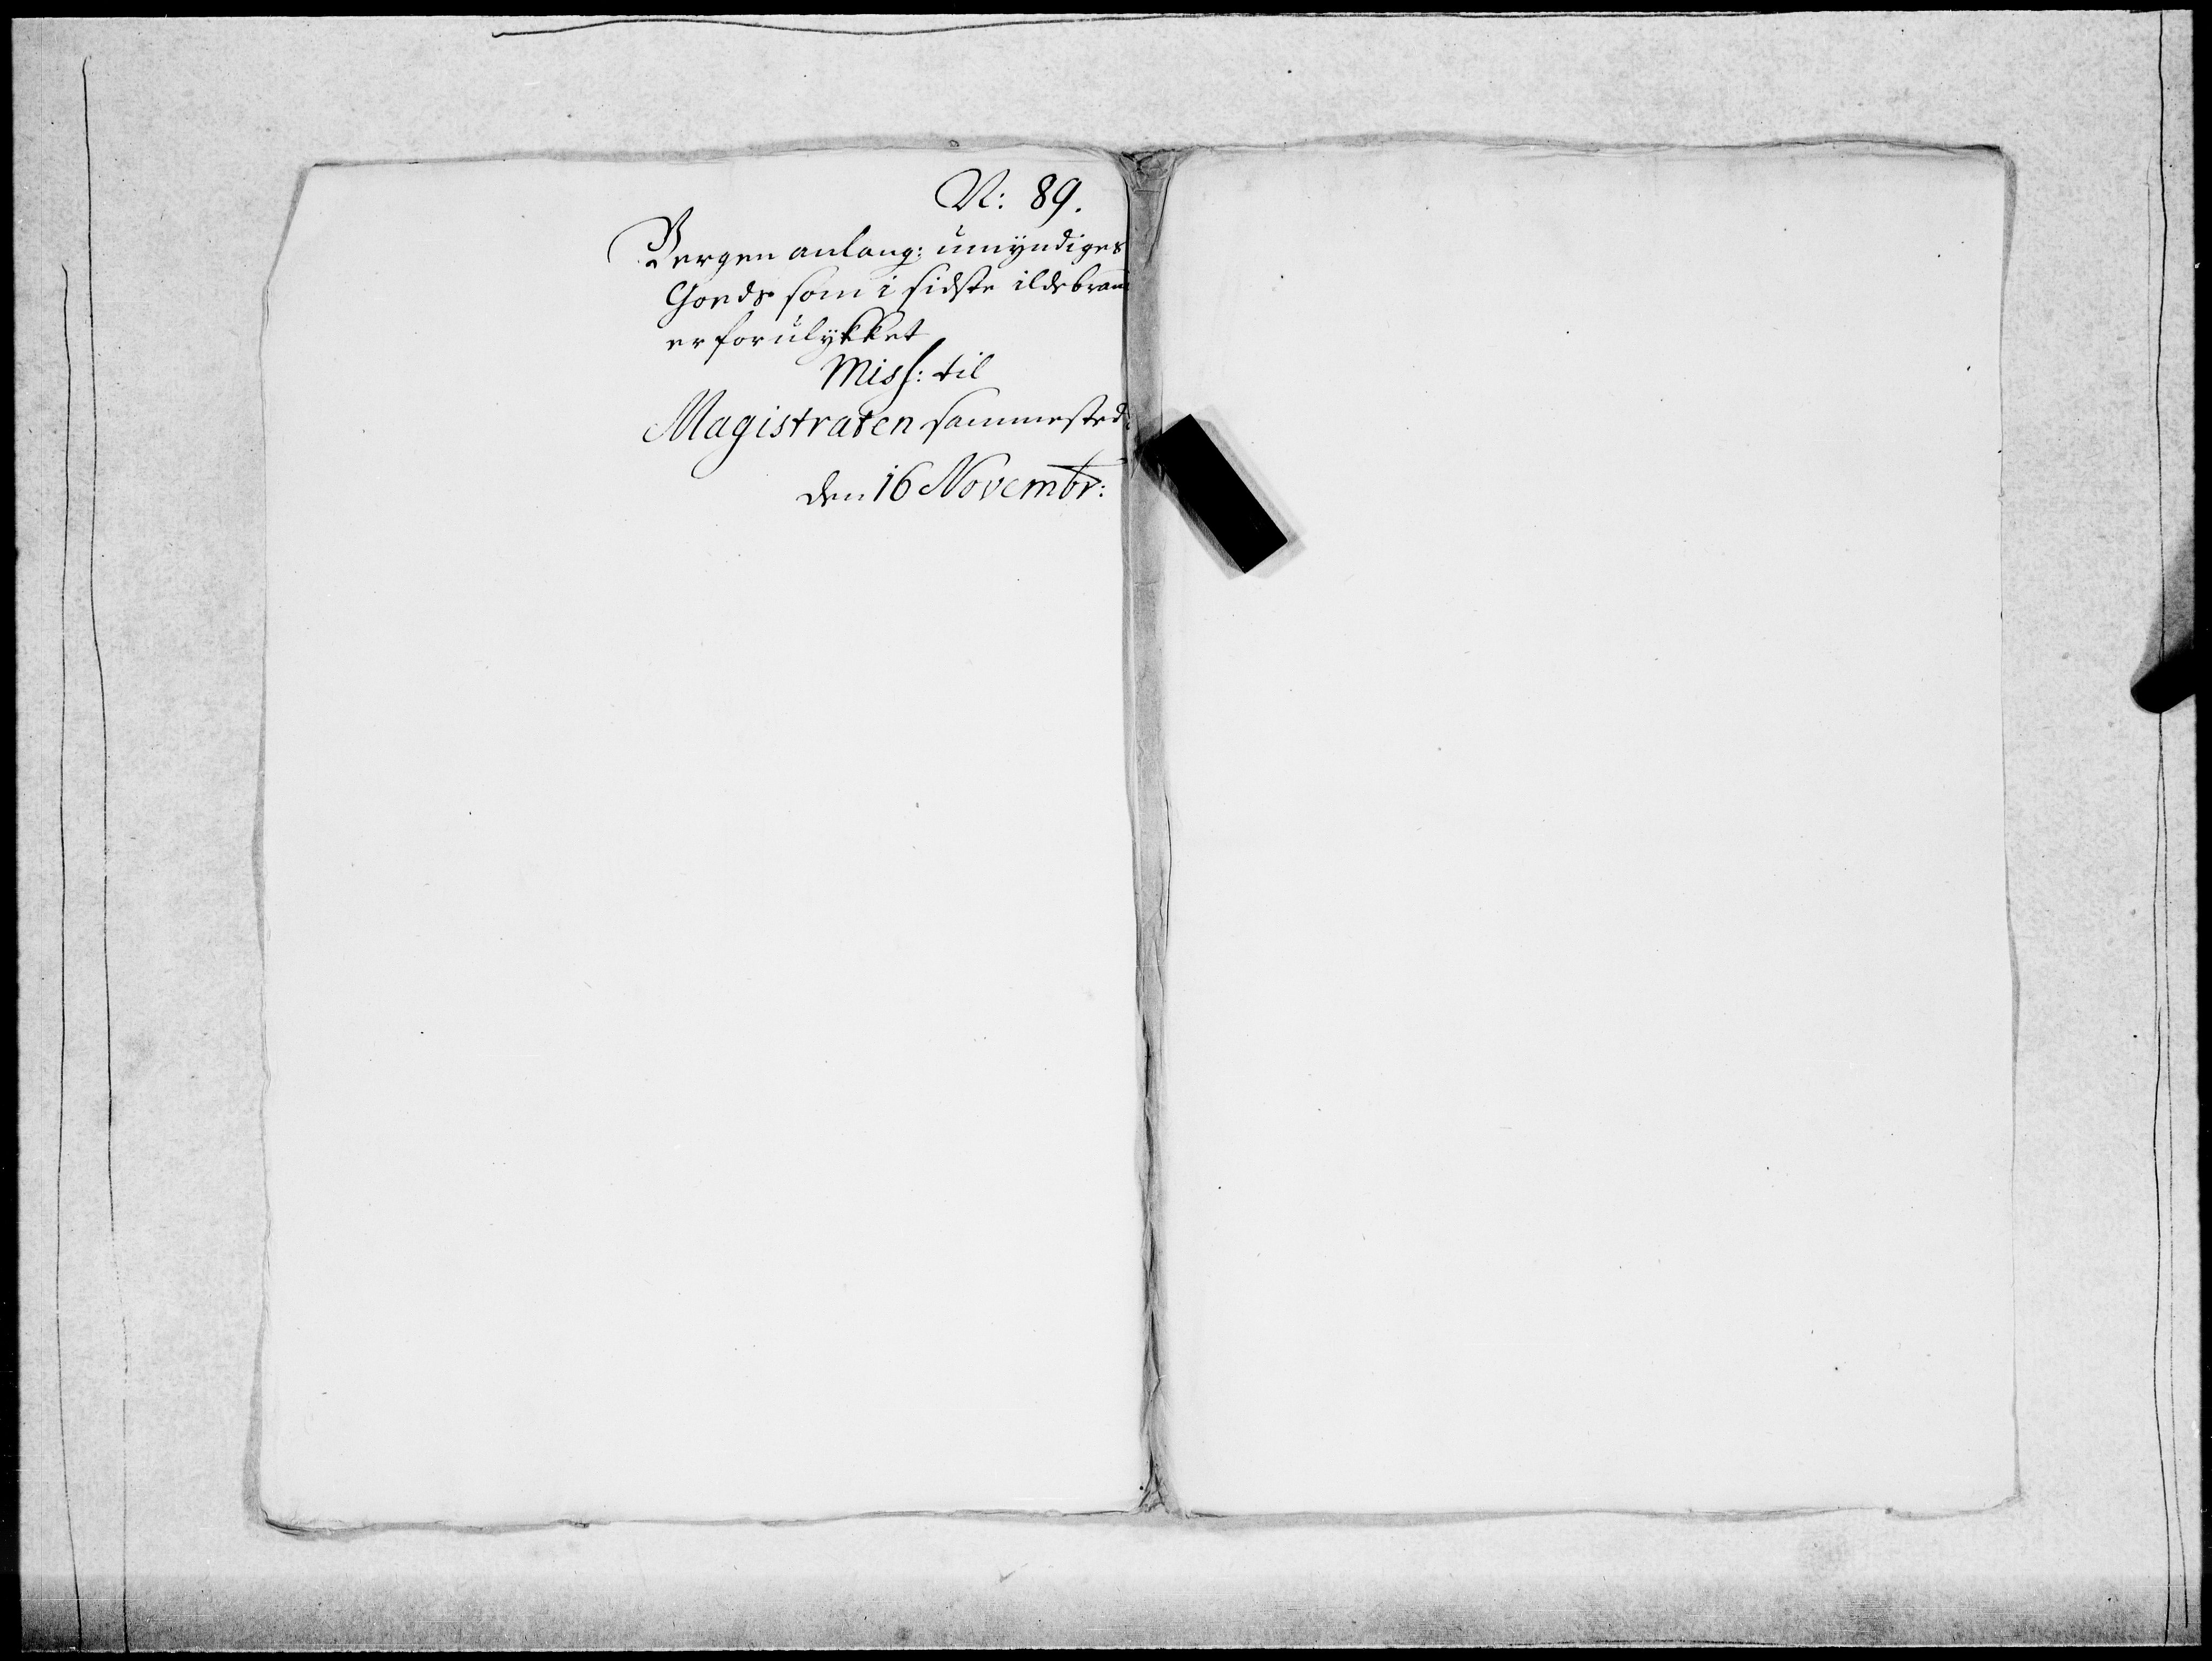 N: 89.
Bergen anlang: umÿndiges
Goeds som i sidste ildebran
er forulÿkket
Miss: til
Magistraten sammested:
den 16 Novembr: